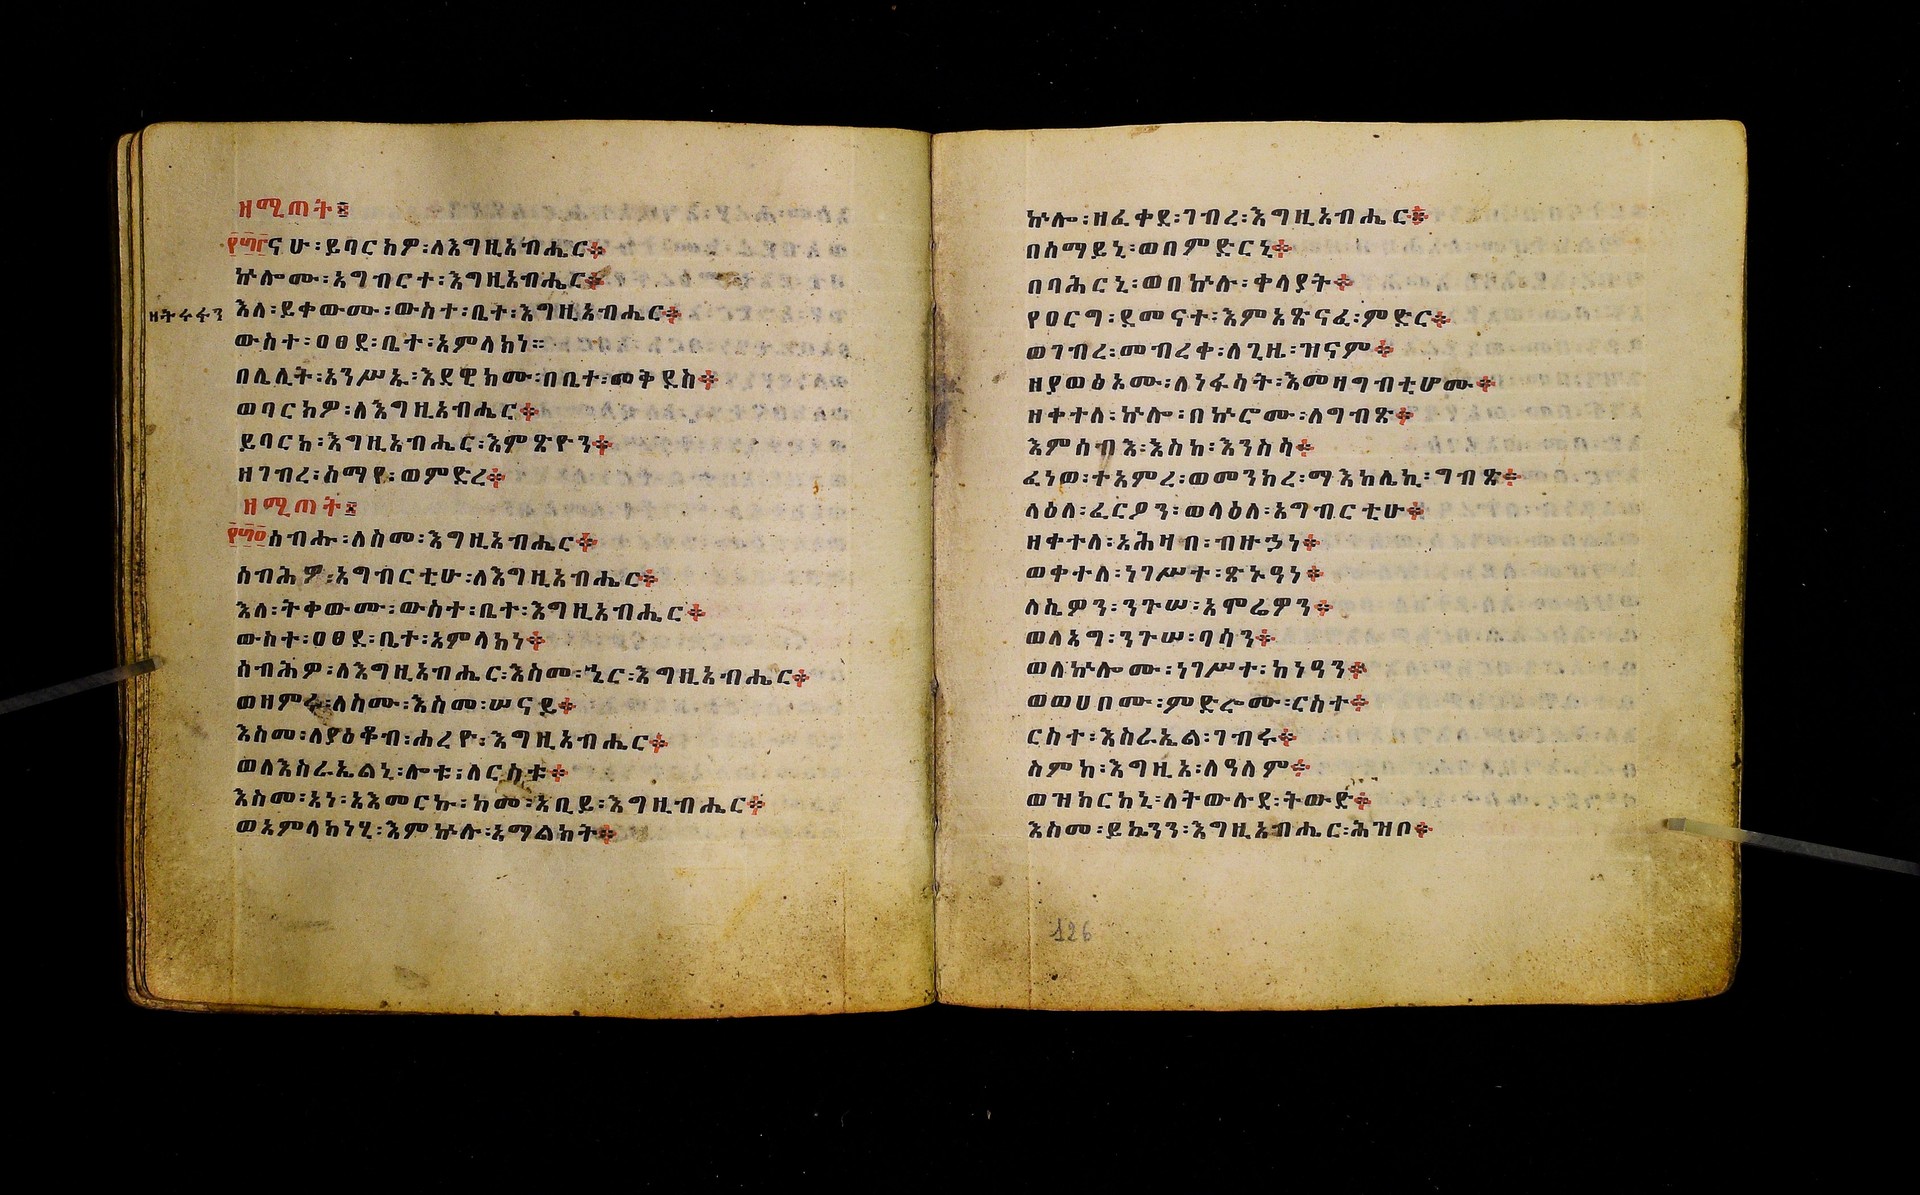 ዘሚጠት፤
፻፴፫ናሁ፡ይባርክዎ፡ለእግዚአብሔር፨
ኵሎሙ፡አግብርተ፡እግዚአብሔር፨
እለ፡ይቀውሙ፡ውስተ፡ቤተ፡እግዚአብሔር፨
ውስተ፡ዐፀደ፡ቤተ፡አምላክነ።
በሌሊት፡አንሥኡ፡እደዊክሙ፡በቤተ፡መቅደስ፨
ወባርክዎ፡ለእግዚአብሔር፨
ይባርከ፡እግዚአብሔር፡እምጽዮን፨
ዘገብረ፡ሰማየ፡ወምድረ፨
ዘሚጠት፤
፻፴፬ሰብሑ፡ለስመ፡እግዚአብሔር፨
ሰብሕዎ፡አግብርቲሁ፡ለእግዚአብሔር፨
እለ፡ትቀውሙ፡ውስተ፡ቤተ፡እግዚአብሔር፨
ውስተ፡ዐፀደ፡ቤተ፡አምላክነ፨
ሰብሕዎ፡ለእግዚአብሔር፡እስመ፡ኄር፡እግዚአብሔር፨
ወዘምሩ፡ለስሙ፡እስመ፡ሠናይ፨
እስመ፡ለያዕቆብ፡ሐረዮ፡እግዚአብሔር፨
ወለእስራኤልኒ፡ሎቱ፡ለርስቱ፨
እስመ፡አነ፡አእመርኩ፡ከመ፡አቢይ፡እግዚብሔር፨
ወአምላክነሂ፡እምኵሉ፡አማልክት፨
ኵሎ፡ዘፈቀደ፡ገብረ፡እግዚአብሔር፨
በሰማይኒ፡ወበምድርኒ፨
በባሕርኒ፡ወበኵሉ፡ቀላያት፨
የዐርግ፡ደመናተ፡እምአጽናፈ፡ምድር፨
ወገብረ፡መብረቀ፡ለጊዜ፡ዝናም፨
ዘያወፅአሙ፡ለነፋሳት፡እመዛግብቲሆሙ፨
ዘቀተለ፡ኵሎ፡በኵሮሙ፡ለግብጽ፨
እምሰብእ፡እስከ፡እንስሳ፨
ፈነወ፡ተአምረ፡ወመንክረ፡ማእከሌኪ፡ግብጽ፨
ላዕለ፡ፈርዖን፡ወላዕለ፡አግብርቲሁ፨
ዘቀተለ፡አሕዛብ፡ብዙኃነ፨
ወቀተለ፡ነገሥተ፡ጽኑዓነ፨
ለሴዎን፡ንጉሠ፡አሞሬዎን፨
ወለአግ፡ንጉሠ፡ባሳን፨
ወለኵሎሙ፡ነገሥተ፡ከነዓን፨
ወወሀበሙ፡ምድሮሙ፡ርስተ፨
ርስተ፡እስራኤል፡ገብሩ፨
ስምከ፡እግዚአ፡ለዓለም፨
ወዝክርከኒ፡ለትውሉደ፡ትውድ፨
እስመ፡ይኴንን፡እግዚአብሔር፡ሕዝቦ፨
126